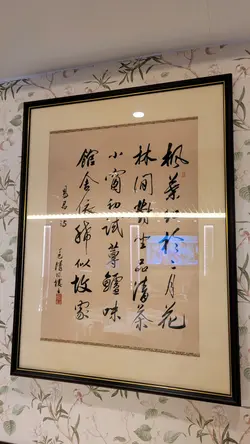 枫叶红於二月花
林间对坐品清茶
小窗初试莼鲈味
馆舍依稀似故家